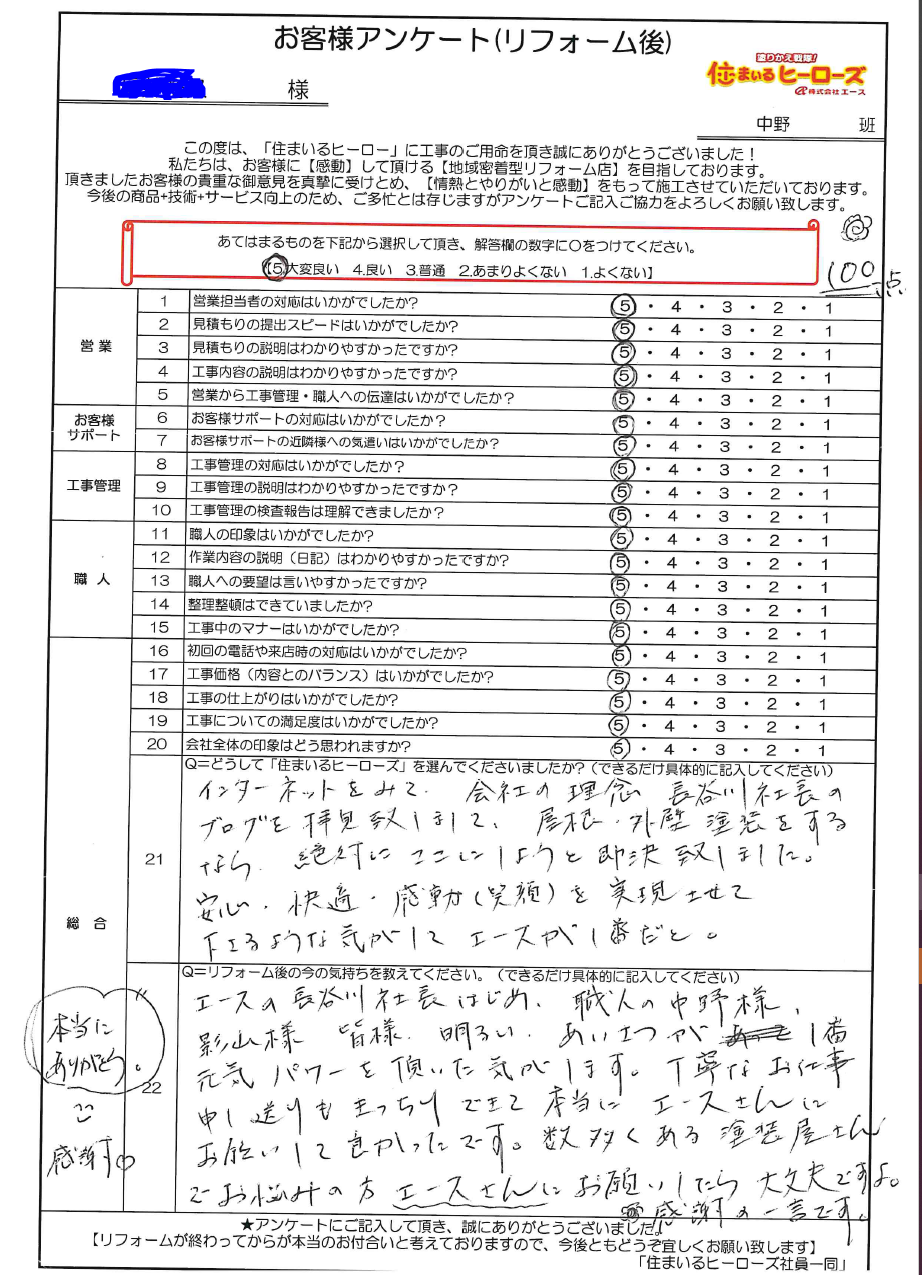 お客様アンケート(リフォーム後)
様
塗りかえ戦隊!
住まいるヒーローズ
株式会社エース
中野 班
この度は、「住まいるヒーロー」に工事のご用命を頂き誠にありがとうございました!
私たちは、お客様に【感動】して頂ける【地域密着型リフォーム店】を目指しております。
頂きましたお客様の貴重な御意見を真摯に受けとめ、【情熱とやりがいと感動】をもって施工させていただいております。
今後の商品+技術+サービス向上のため、ご多忙とは存じますがアンケートご記入ご協力をよろしくお願い致します。
あてはまるものを下記から選択して頂き、解答欄の数字に○をつけてください。
【5.大変良い 4.良い 3.普通 2.あまりよくない 1.よくない】
100点
営業
1 営業担当者の対応はいかがでしたか? 5・4・3・2・1
2 見積もりの提出スピードはいかがでしたか? 5・4・3・2・1
3 見積もりの説明はわかりやすかったですか? 5・4・3・2・1
4 工事内容の説明はわかりやすかったですか? 5・4・3・2・1
5 営業から工事管理・職人への伝達はいかがでしたか? 5・4・3・2・1
お客様
サポート
6 お客様サポートの対応はいかがでしたか? 5・4・3・2・1
7 お客様サポートの近隣様への気遣いはいかがでしたか? 5・4・3・2・1
工事管理
8 工事管理の対応はいかがでしたか? 5・4・3・2・1
9 工事管理の説明はわかりやすかったですか? 5・4・3・2・1
10 工事管理の検査報告は理解できましたか? 5・4・3・2・1
職人
11 職人の印象はいかがでしたか? 5・4・3・2・1
12 作業内容の説明(日記)はわかりやすかったですか? 5・4・3・2・1
13 職人への要望は言いやすかったですか? 5・4・3・2・1
14 整理整頓はできていましたか? 5・4・3・2・1
15 工事中のマナーはいかがでしたか? 5・4・3・2・1
総合
16 初回の電話や来店時の対応はいかがでしたか? 5・4・3・2・1
17 工事価格(内容とのバランス)はいかがでしたか? 5・4・3・2・1
18 工事の仕上がりはいかがでしたか? 5・4・3・2・1
19 工事についての満足度はいかがでしたか? 5・4・3・2・1
20 会社全体の印象はどう思われますか? 5・4・3・2・1
21 Q=どうして「住まいるヒーローズ」を選んでくださいましたか?(できるだけ具体的に記入してください)
インターネットをみて、会社の理念 長谷川社長の
ブログを拝見致しまして、屋根・外壁塗装をする
なら、絶対にここにしようと即決致しました。
安心・快適・感動(笑顔)を実現させて
下さるような気がして エースが1番だと。
22 Q=リフォーム後の今の気持ちを教えてください。(できるだけ具体的に記入してください)
エースの長谷川社長はじめ、職人の中野様、
影山様 皆様 明るい、あいさつが 1番
元気パワーを頂いた気がします。丁寧なお仕事
申し送りもきっちりできて本当に エースさんに
お願いして良かったです。数多くある塗装屋さん
でお悩みの方 エースさんにお願いしたら大丈夫ですよ。
感謝の一言です。
本当に
ありがとう。
感謝す。
★アンケートにご記入して頂き、誠にありがとうございました!
【リフォームが終わってからが本当のお付合いと考えておりますので、今後ともどうぞ宜しくお願い致します】
「住まいるヒーローズ社員一同」